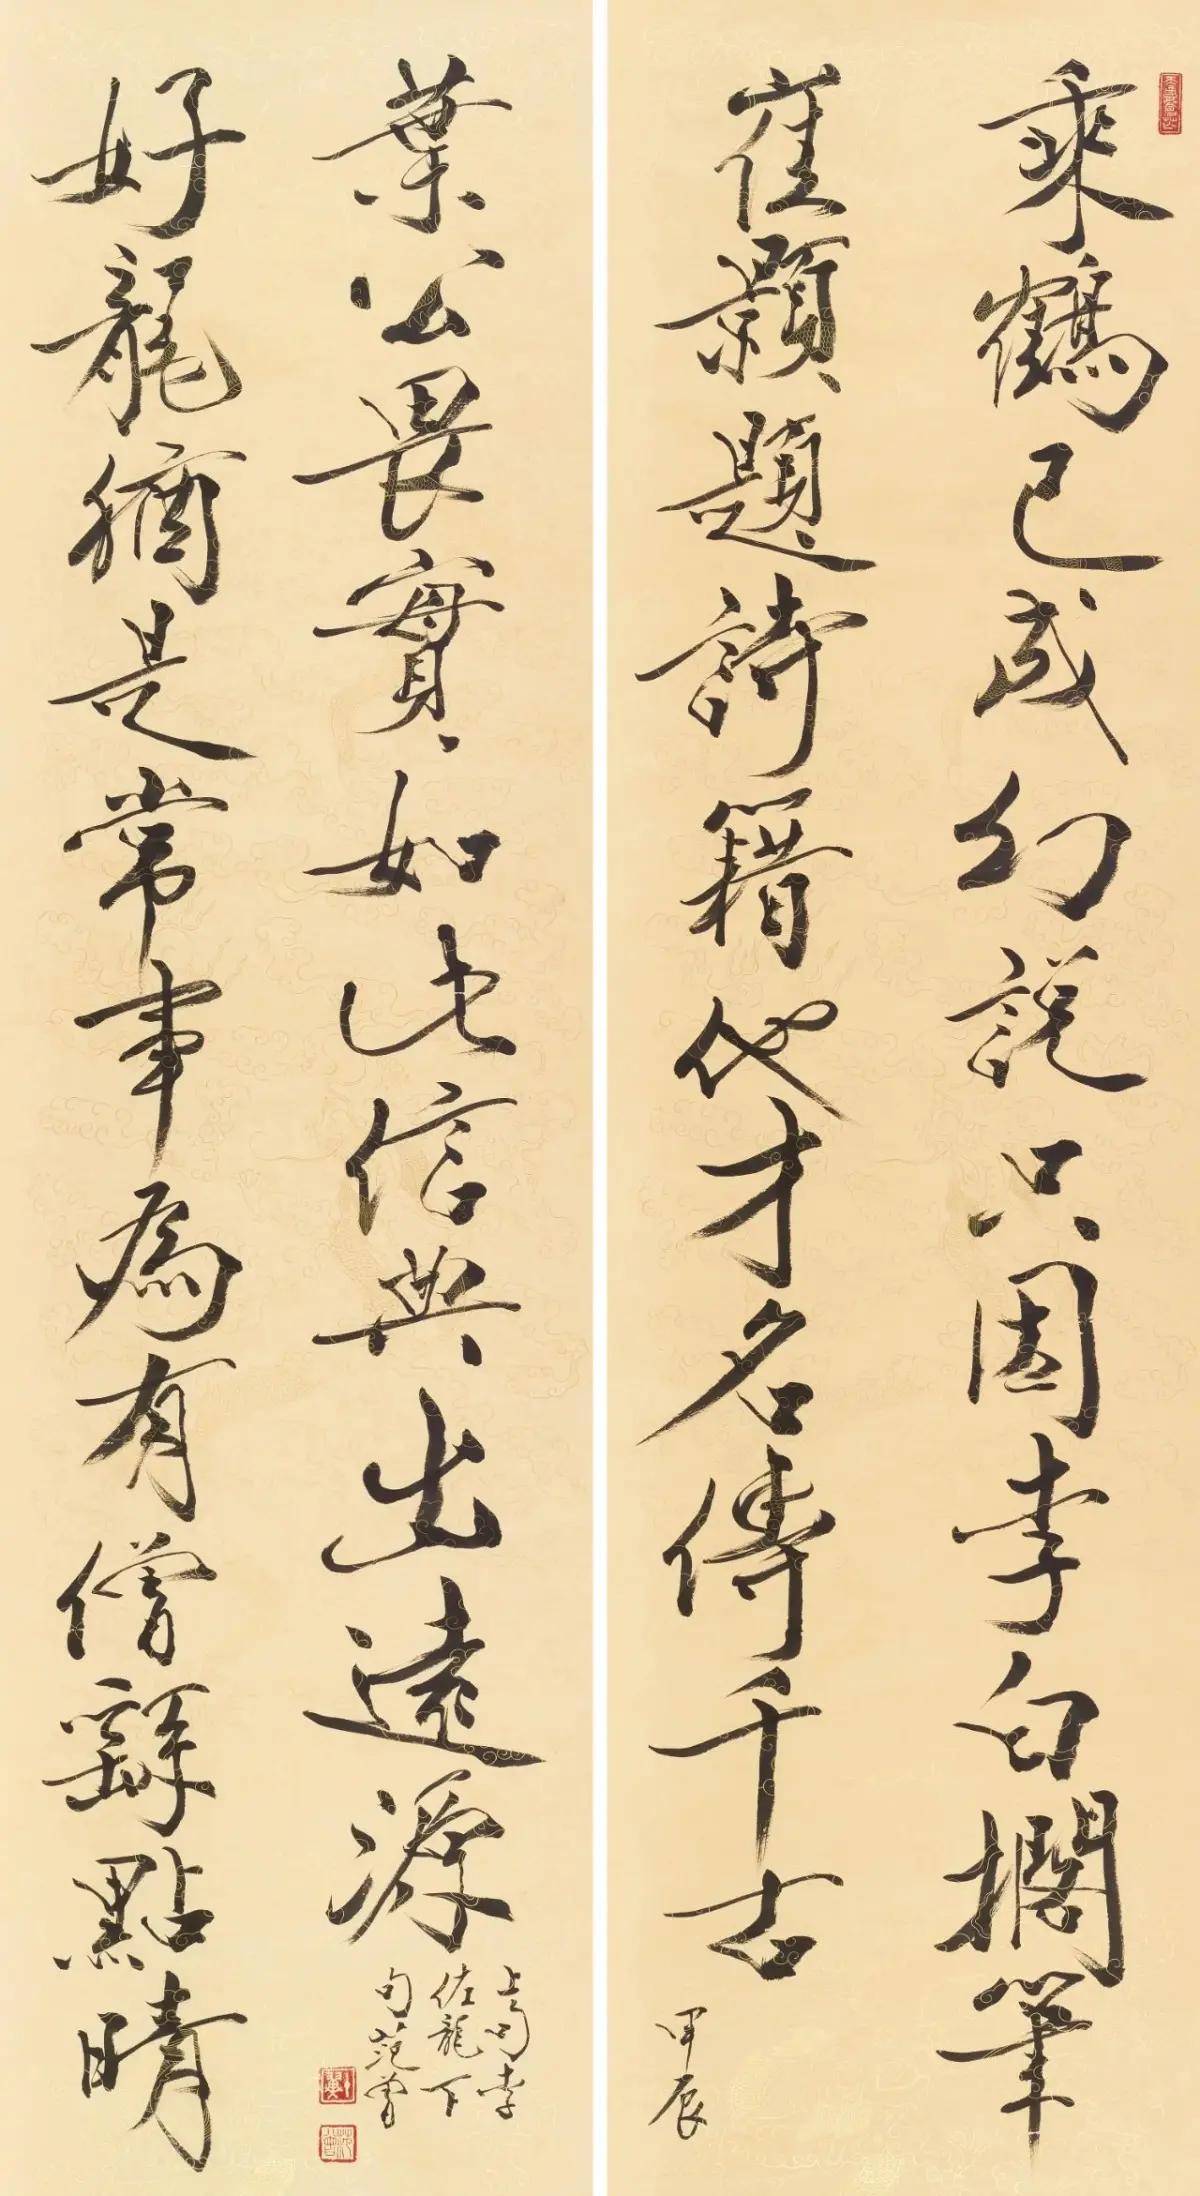 乘鶴已成幻說只因李白擱筆
崔顥題詩籍他才名傳千古
甲辰
葉公畏實如此信典出遠源
好龍猶是常事為有僧繇點睛
上句李
佐龍下
句范曾